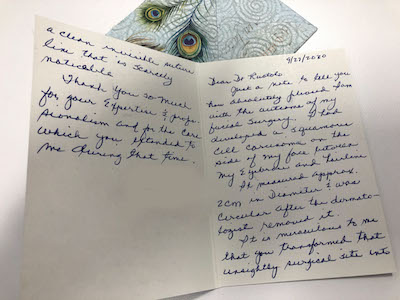 Dear Dr
Just a note to tell you
how absolutely pleased I am
with the outcome of my
facial surgery. I had
developed a squamous
cell carcinoma on the
side of my face between
my Eyebrow and hairline
It measured approx.
2cm in Diameter & was
circular after the dermato-
logist removed it.
It is miraculous to me
that you transformed that
unsightly surgical site into
a clean invisible suture
line that is scarcely
noticeable
Thank you so much
for your Expertise & profes-
sionalism and for the care
which you extended to
me during that time.